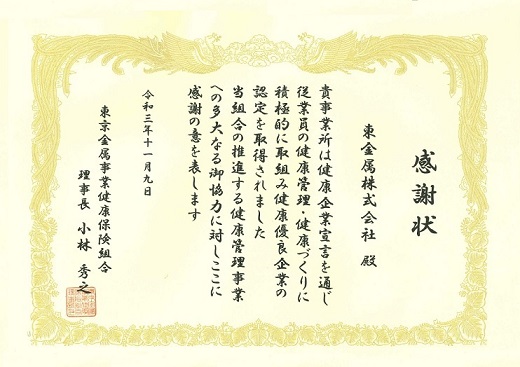 感謝状
東金属株式会社 殿
貴事業所は健康企業宣言を通じ
従業員の健康管理・健康づくりに
積極的に取組み健康優良企業の
認定を取得されました
当組合の推進する健康管理事業
への多大なる御協力に対しここに
感謝の意を表します
令和三年十一月九日
東京金属事業健康保険組合
理事長 小林 秀之